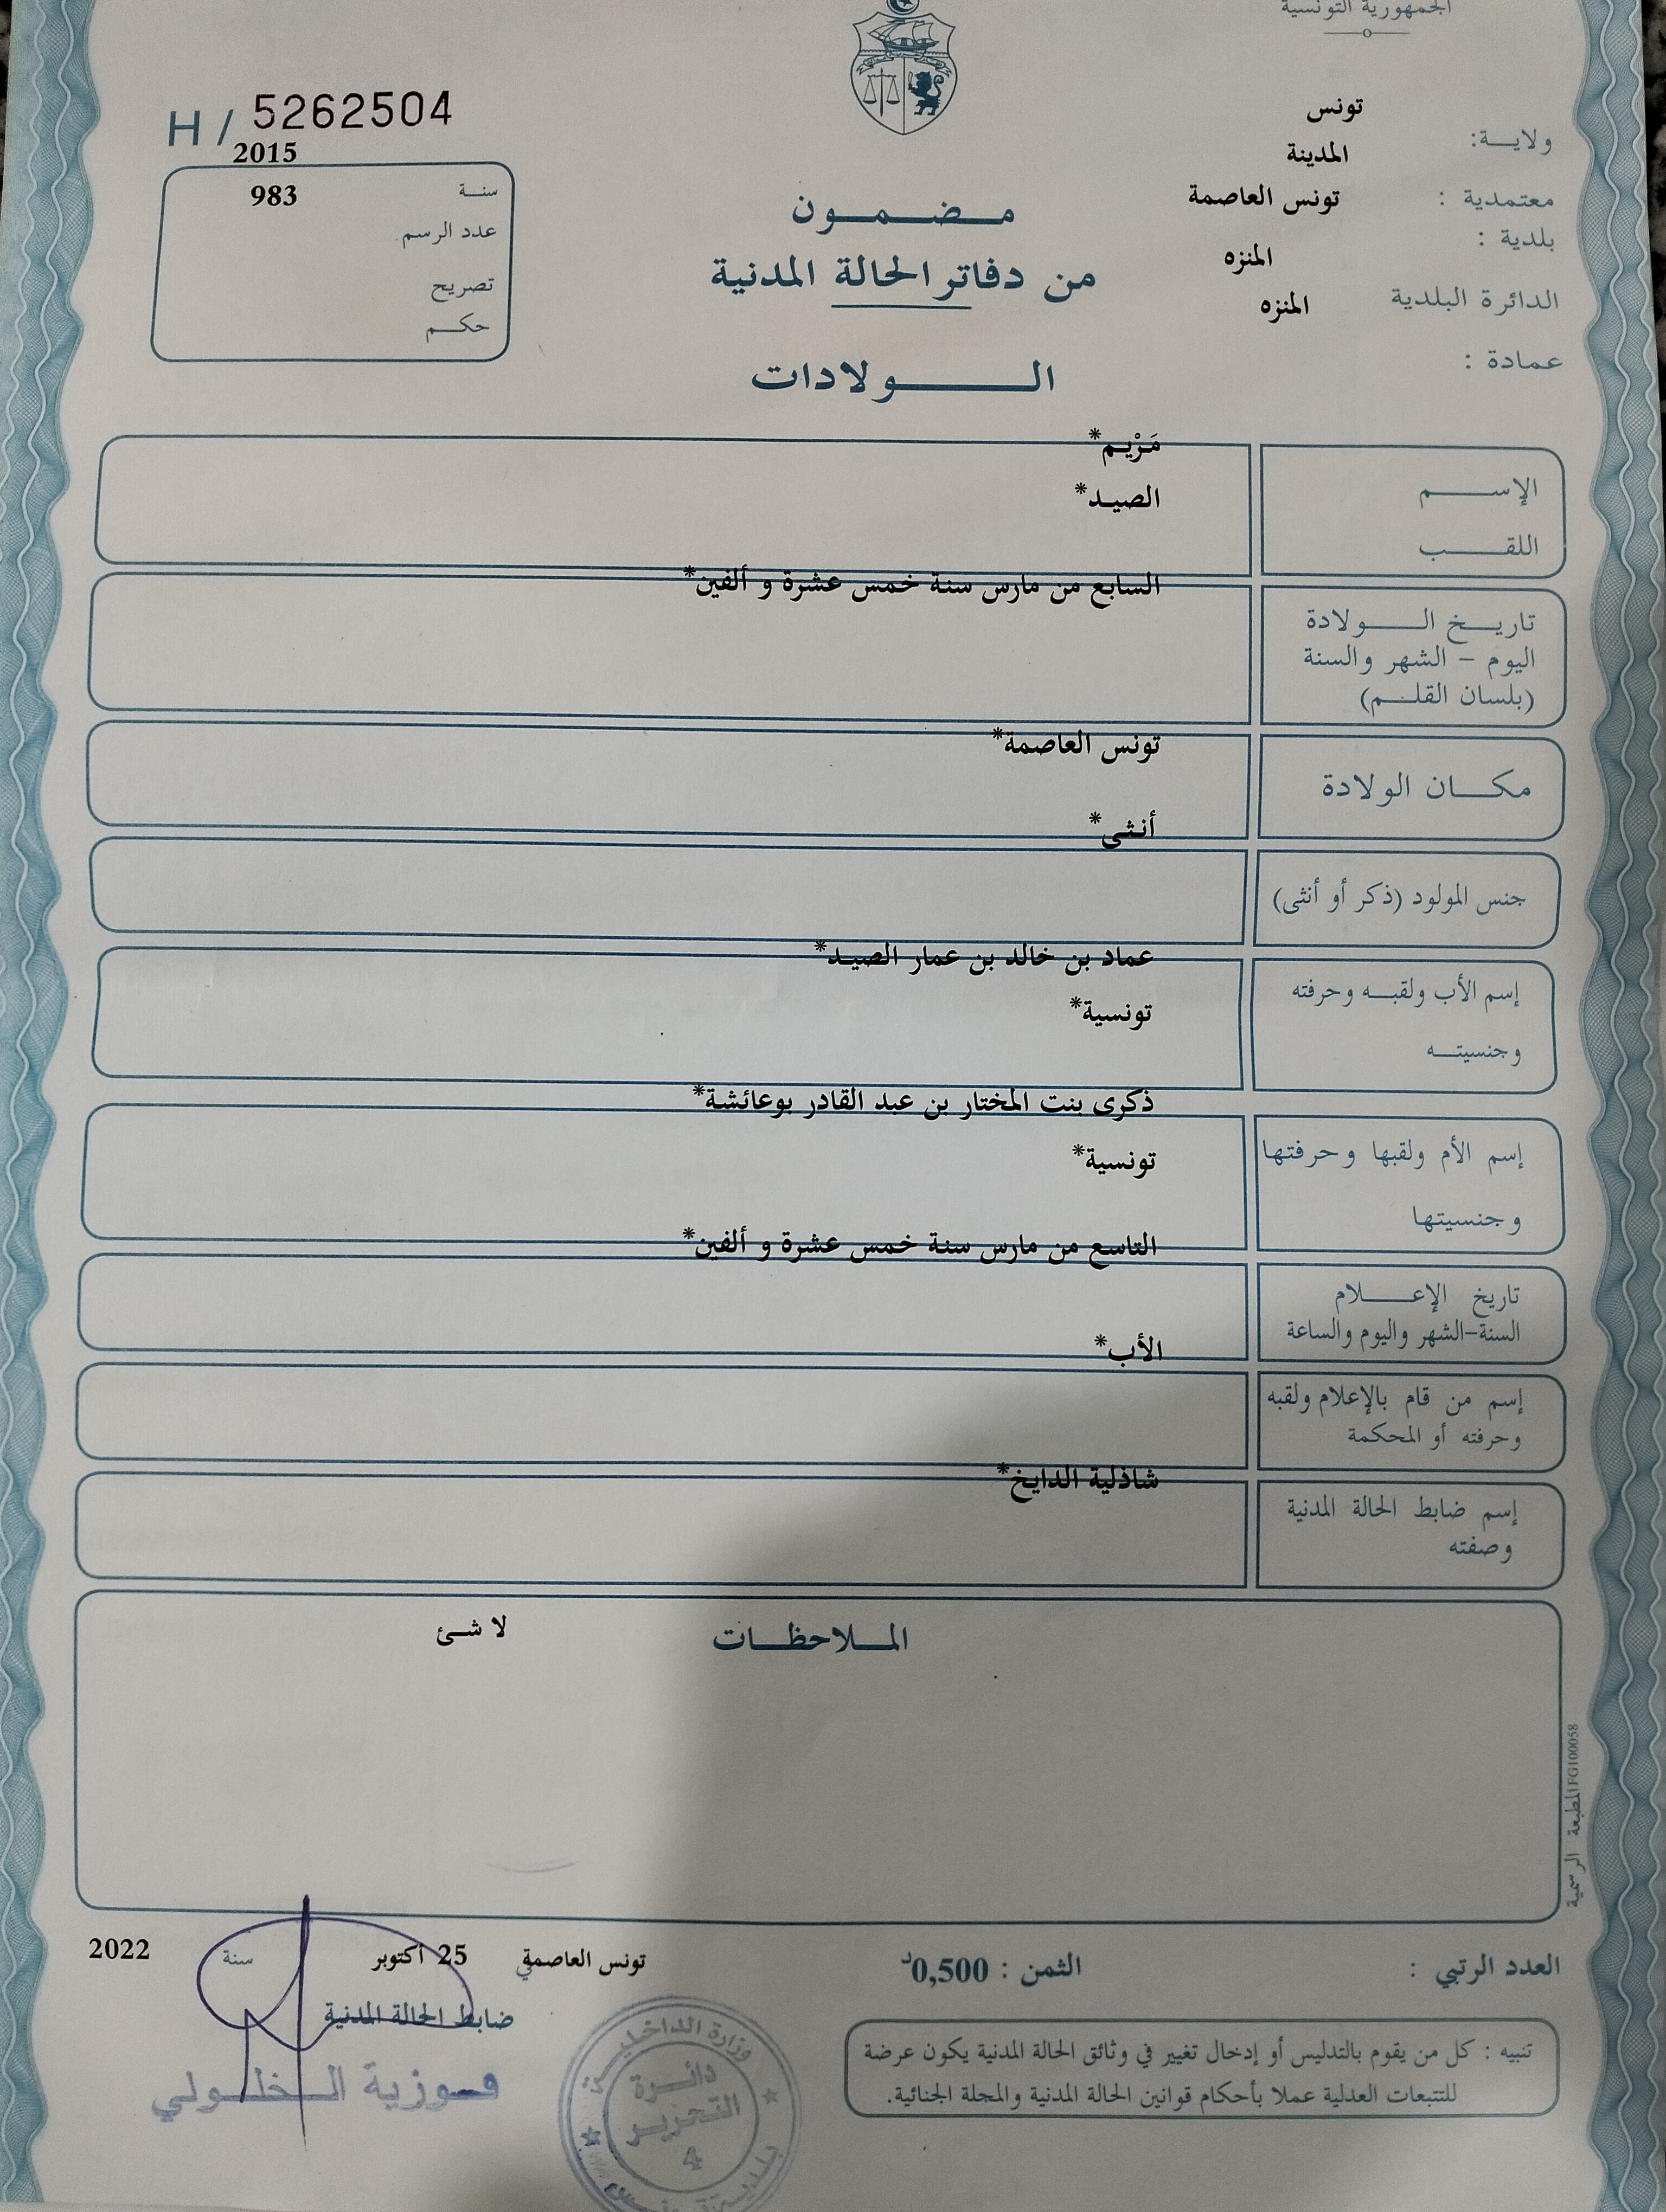 الجمهورية التونسية
ولاية: تونس
معتمدية : المدينة
بلدية : تونس العاصمة
الدائرة البلدية المنزه
عمادة : المنزه
H/ 5262504
سنة 2015
عدد الرسم 983
تصريح
حكم
مضمون
من دفاتر الحالة المدنية
الولادات
الإسم مَرْيم*
اللقب الصيد*
تاريخ الولادة السابع من مارس سنة خمس عشرة و ألفين*
اليوم – الشهر والسنة
(بلسان القلم)
مكان الولادة تونس العاصمة*
جنس المولود (ذكر أو أنثى) أنثى*
إسم الأب ولقبه وحرفته عماد بن خالد بن عمار الصيد*
وجنسيته تونسية*
إسم الأم ولقبها وحرفتها ذكرى بنت المختار بن عبد القادر بوعائشة*
وجنسيتها تونسية*
تاريخ الإعلام التاسع من مارس سنة خمس عشرة و ألفين*
السنة–الشهر واليوم والساعة
إسم من قام بالإعلام ولقبه الأب*
وحرفته أو المحكمة
إسم ضابط الحالة المدنية شاذلية الدايخ*
وصفته
الملاحظات لا شئ
المطبعة الرسمية FG100058
العدد الرتبي :
الثمن : 0,500د
تونس العاصمة في 25 أكتوبر سنة 2022
ضابط الحالة المدنية
فوزية الخلولي
وزارة الداخلية
دائرة
التحرير
4
بلدية تونس
تنبيه : كل من يقوم بالتدليس أو إدخال تغيير في وثائق الحالة المدنية يكون عرضة
للتتبعات العدلية عملا بأحكام قوانين الحالة المدنية والمجلة الجنائية.